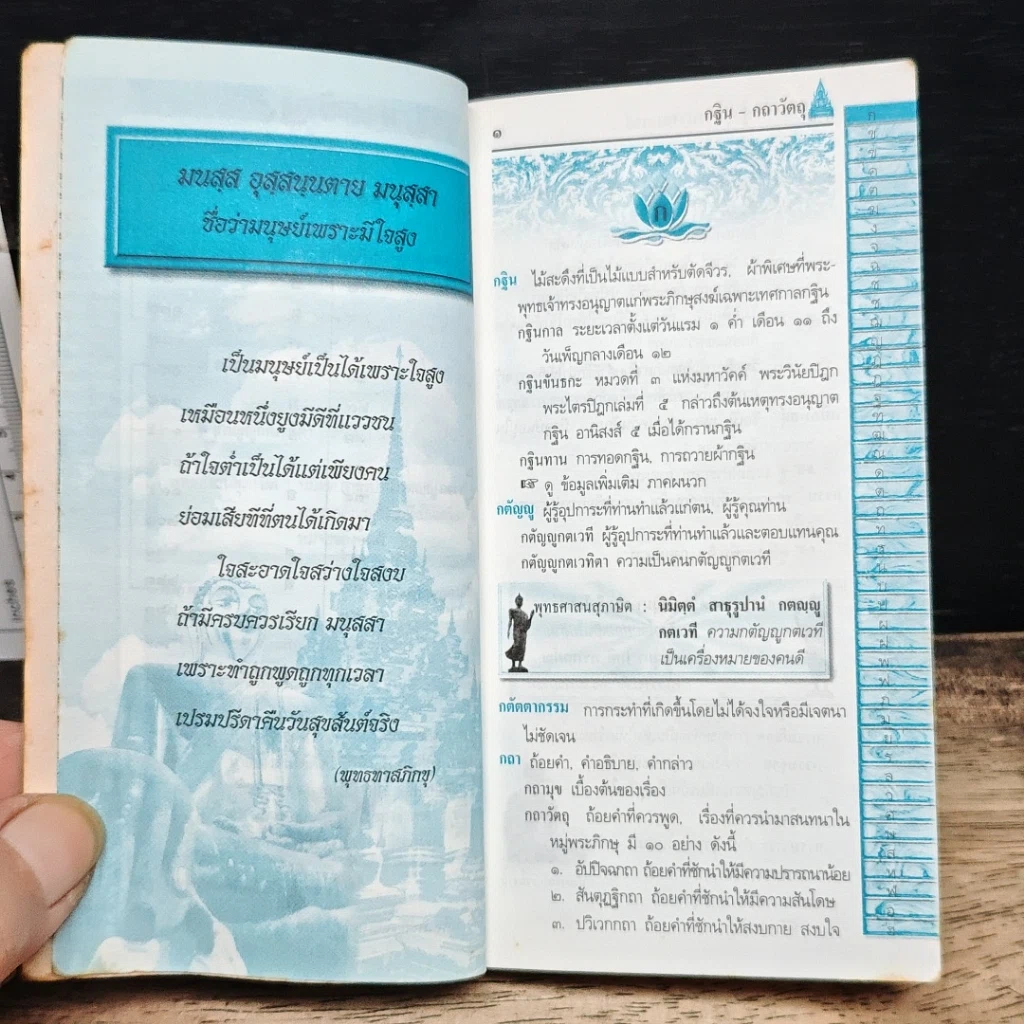 มนสฺส อุสฺสนฺนตาย มนุสฺสา
ชื่อว่ามนุษย์เพราะมีใจสูง
เป็นมนุษย์เป็นได้เพราะใจสูง
เหมือนหนึ่งยูงมีดีที่แววขน
ถ้าใจต่ำเป็นได้แต่เพียงคน
ย่อมเสียทีที่ตนได้เกิดมา
ใจสะอาดใจสว่างใจสงบ
ถ้ามีครบควรเรียก มนุสสา
เพราะทำถูกพูดถูกทุกเวลา
เปรมปรีดาคืนวันสุขสันต์จริง
(พุทธทาสภิกขุ)
๑
กฐิน - กถาวัตถุ
ก
กฐิน ไม้สะดึงที่เป็นไม้แบบสำหรับตัดจีวร, ผ้าพิเศษที่พระ-
พุทธเจ้าทรงอนุญาตแก่พระภิกษุสงฆ์เฉพาะเทศกาลกฐิน
กฐินกาล ระยะเวลาตั้งแต่วันแรม ๑ ค่ำ เดือน ๑๑ ถึง
วันเพ็ญกลางเดือน ๑๒
กฐินขันธกะ หมวดที่ ๓ แห่งมหาวัคค์ พระวินัยปิฎก
พระไตรปิฎกเล่มที่ ๕ กล่าวถึงต้นเหตุทรงอนุญาต
กฐิน อานิสงส์ ๕ เมื่อได้กรานกฐิน
กฐินทาน การทอดกฐิน, การถวายผ้ากฐิน
☞ ดู ข้อมูลเพิ่มเติม ภาคผนวก
กตัญญู ผู้รู้อุปการะที่ท่านทำแล้วแก่ตน, ผู้รู้คุณท่าน
กตัญญูกตเวที ผู้รู้อุปการะที่ท่านทำแล้วและตอบแทนคุณ
กตัญญูกตเวทิตา ความเป็นคนกตัญญูกตเวที
พุทธศาสนสุภาษิต : นิมิตฺตํ สาธุรูปานํ กตญฺญู
กตเวที ความกตัญญูกตเวที
เป็นเครื่องหมายของคนดี
กตัตตากรรม การกระทำที่เกิดขึ้นโดยไม่ได้จงใจหรือมีเจตนา
ไม่ชัดเจน
กถา ถ้อยคำ, คำอธิบาย, คำกล่าว
กถามุข เบื้องต้นของเรื่อง
กถาวัตถุ ถ้อยคำที่ควรพูด, เรื่องที่ควรนำมาสนทนาใน
หมู่พระภิกษุ มี ๑๐ อย่าง ดังนี้
๑. อัปปิจฉกถา ถ้อยคำที่ชักนำให้มีความปรารถนาน้อย
๒. สันตุฏฐิกถา ถ้อยคำที่ชักนำให้มีความสันโดษ
๓. ปวิเวกกถา ถ้อยคำที่ชักนำให้สงบกาย สงบใจ